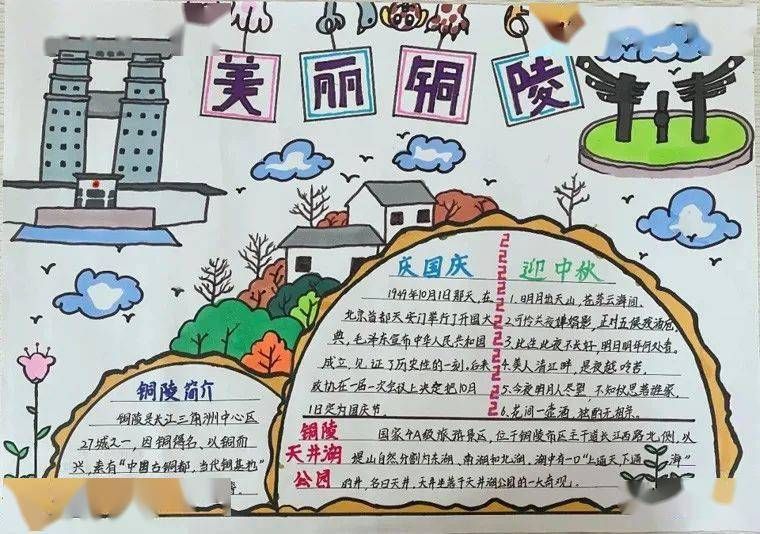 美丽铜陵
庆国庆
1949年10月1日那天,在
北京首都天安门举行了开国大
典,毛泽东宣布中华人民共和国
成立,见证了历史性的一刻,后来
政协在一届一次会议上决定把10月
1日定为国庆节。
迎中秋
1.明月出天山,苍茫云海间。
2.可怜关夜婵娟影,正对五候残酒
3.此生此夜不长好,明月明年何处看。
4.美人清江畔,是夜越吟苦。
5.今夜明月人尽望,不知秋思落谁家。
6.花间一壶酒,独酌无相亲。
铜陵简介
铜陵是长江三角洲中心区
27城之一,因铜得名、以铜而
兴,素有“中国古铜都,当代铜基地”
铜陵
天井湖
公园
国家4A级旅游景区,位于铜陵市区主干道长江西路北侧,以
堤山自然分割为东湖、南湖和北湖,湖中有一口“上通天下通 海”
的井,名曰天井,天井坐落于天井湖公园的一大奇观。